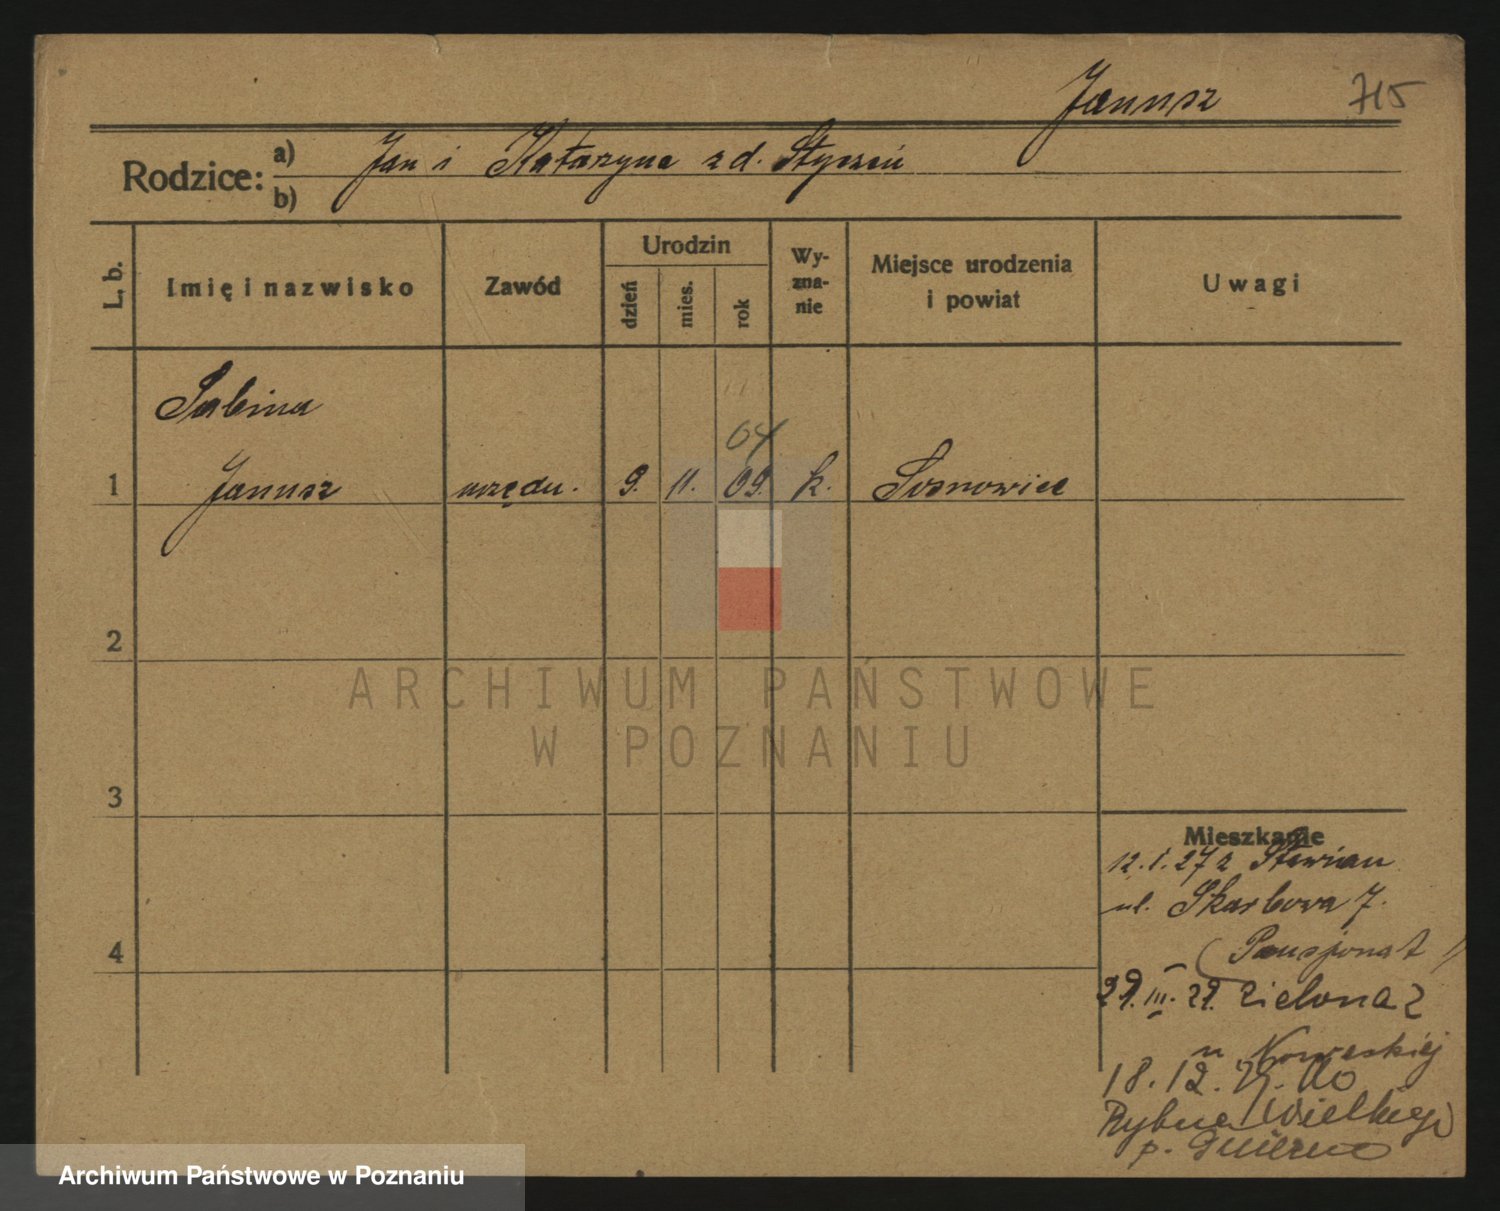 Janusz 715
Rodzice: a) Jan i Katarzyna z d. Styczeń
b)
L. b. Imię i nazwisko Zawód Urodzin dzień mies. rok Wyznanie Miejsce urodzenia i powiat Uwagi
Sabina
04
1 Janusz urzędn. 9. 11. 09. k. Sosnowiec
2
ARCHIWUM PAŃSTWOWE
W POZNANIU
3
Mieszkanie
12.1.27 z
ul. Skarbowa 7.
(Pensjonat
4
29.III.29. Zielona 2
u Noweskiej
18.12. do
p.
Archiwum Państwowe w Poznaniu